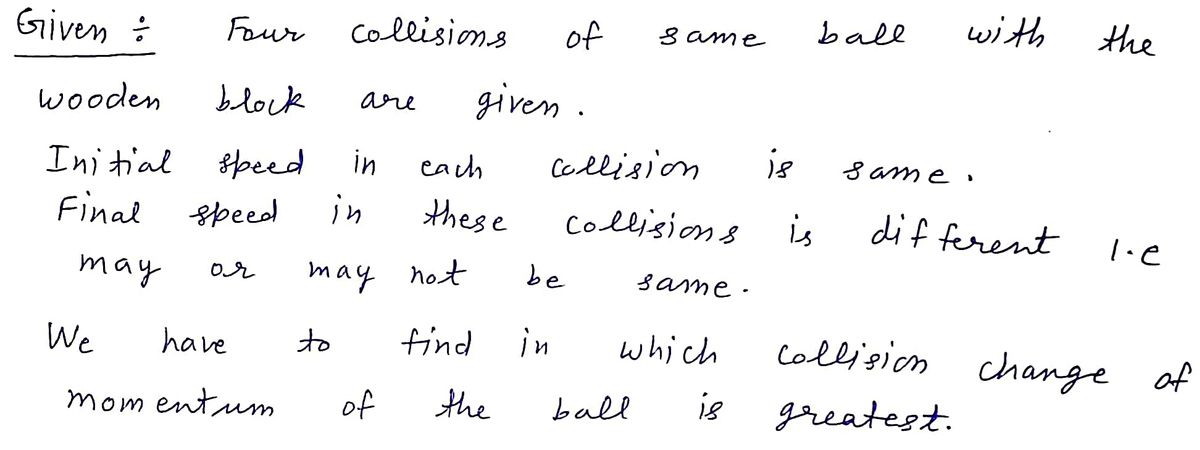 Given ÷ Four collisions of same ball with the
wooden block are given.
Initial speed in each collision is same.
Final speed in these collisions is different i.e
may or may not be same.
We have to find in which collision change of
momentum of the ball is greatest.